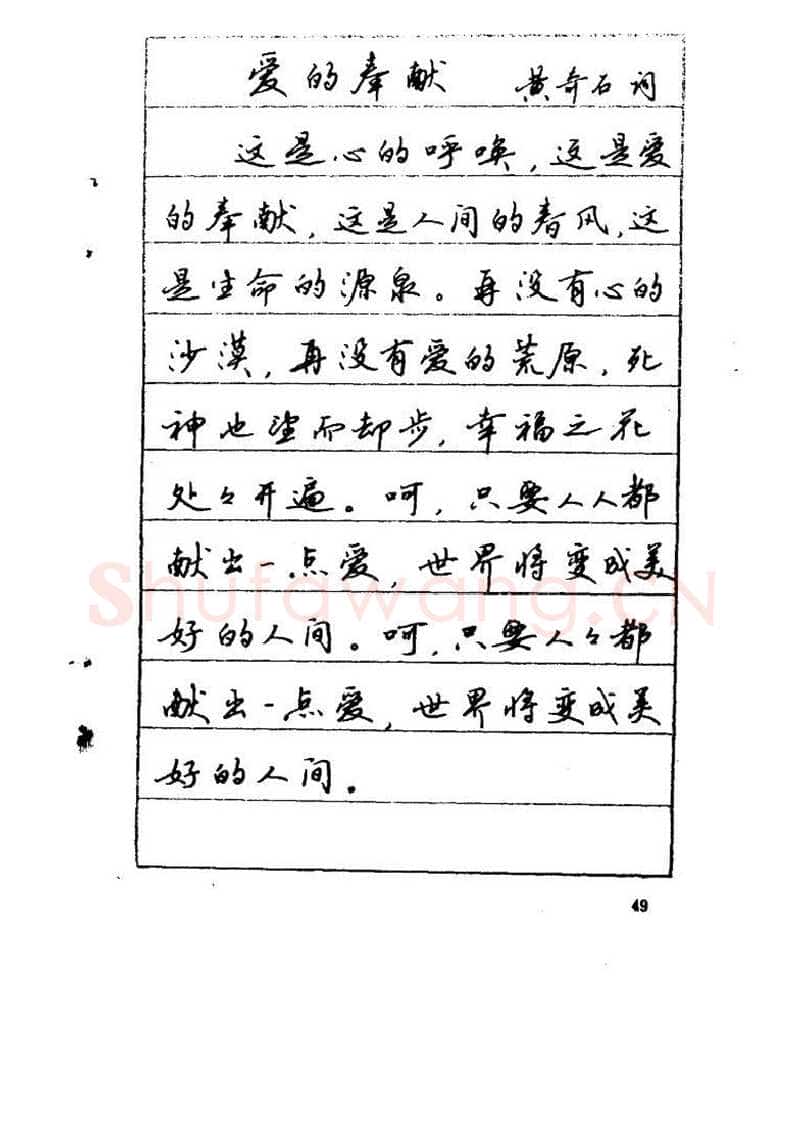 爱的奉献 黄奇石词
这是心的呼唤,这是爱
的奉献,这是人间的春风,这
是生命的源泉。再没有心的
沙漠,再没有爱的荒原,死
神也望而却步,幸福之花
处々开遍。呵,只要人人都
献出一点爱,世界将变成美
好的人间。呵,只要人々都
献出一点爱,世界将变成美
好的人间。
Shufawang.CN
49